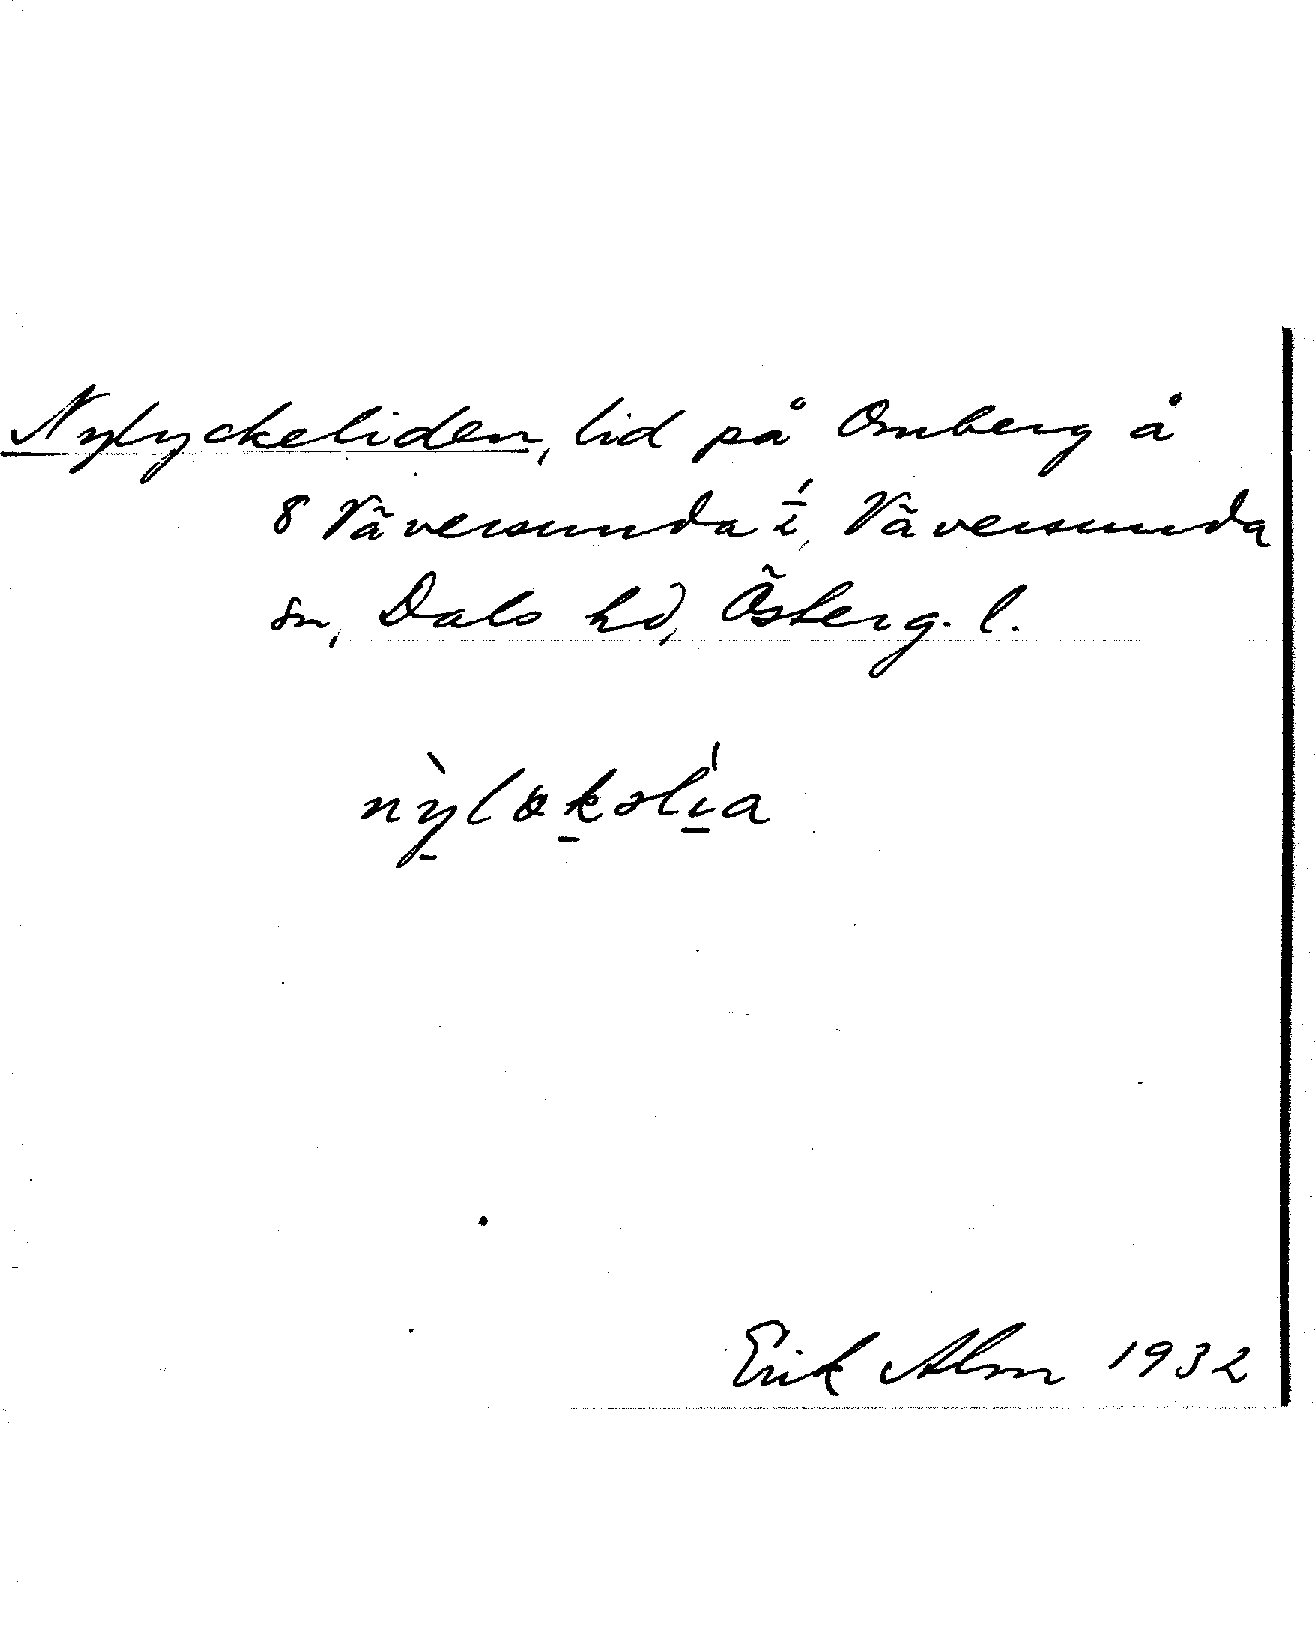 Nylyckeliden, lid på Omberg å
8 Väversunda 1/2, Väversunda
sn, Dals hd, Österg. l.
Erik Alm 1932